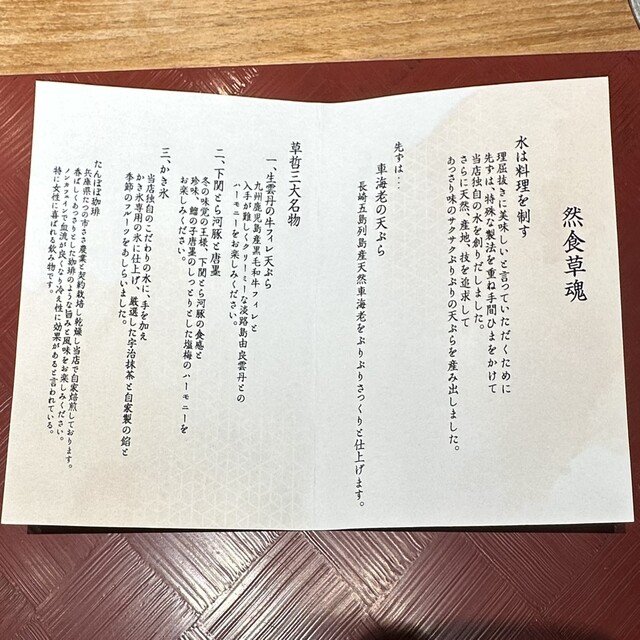 然食草魂
水は料理を制す
理屈抜きに美味しいと言っていただくために
先ずは、特殊な製法を重ね手間ひまをかけて
当店独自の水を創りだしました。
さらに天然、産地、技を追求して
あっさり味のサクサクぷりぷりの天ぷらを産み出しました。
先ずは…
車海老の天ぷら
長崎五島列島産天然車海老をぷりぷりさっくりと仕上げます。
草哲三大名物
一、生雲丹の牛フィレ天ぷら
九州鹿児島産黒毛和牛フィレと
入手が難しくクリーミーな淡路島由良雲丹との
ハーモニーをお楽しみください。
二、下関とら河豚と唐墨
冬の味覚の王様、下関とら河豚の食感と
珍味、鰡の子唐墨のしっとりとした塩梅のハーモニーを
お楽しみください。
三、かき氷
当店独自のこだわりの水に、手を加え
かき氷専用の氷に仕上げ、厳選した宇治抹茶と自家製の餡と
季節のフルーツをあしらいました。
たんぽぽ珈琲
兵庫県たつの市ささ農業と契約栽培し乾燥し当店で自家焙煎しております。
香ばしくあっさりとした珈琲のような旨みと風味をお楽しみください。
ノンカフェインで血流が良くなり冷え性に効果があると言われている。
特に女性に喜ばれる飲み物です。